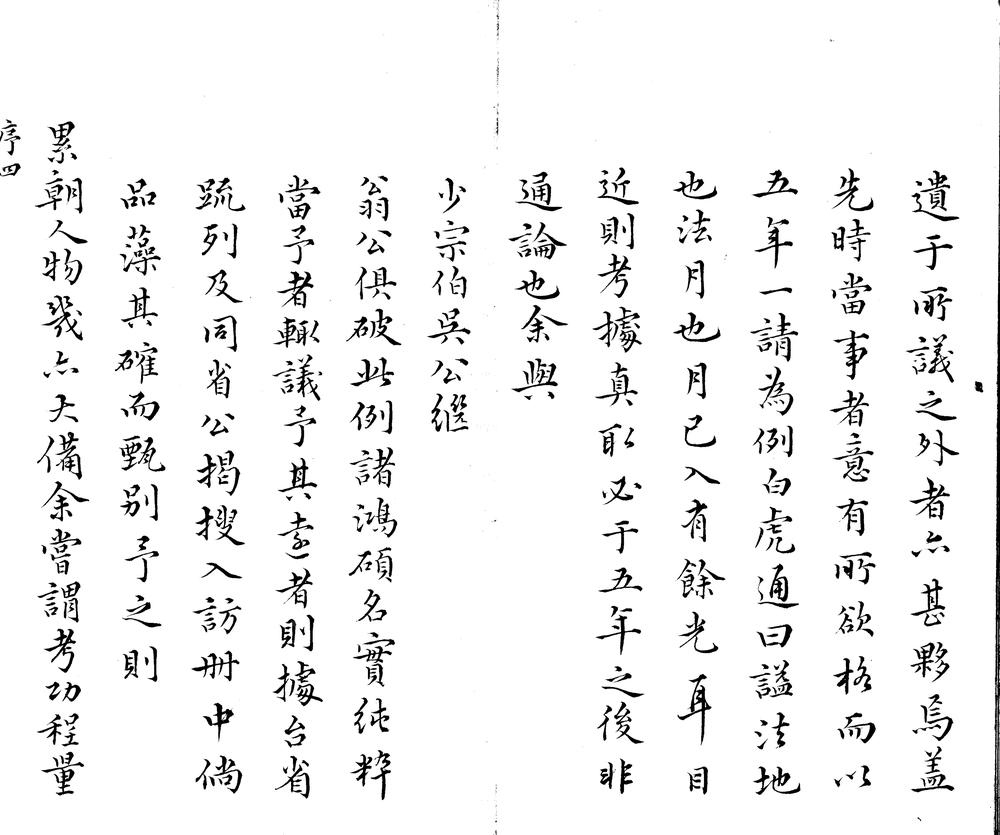 遺于所議之外者亦甚夥焉盖
先時當事者意有所欲格而以
五年一請為例白虎通曰謚法地
也法月也月已入有餘光耳目
近則考據真耴必于五年之後非
通論也余與
少宗伯吳公繼
翁公俱破此例諸鴻碩名實純粹
當予者輙議予其遠者則據台省
䟽列及同省公揭搜入訪册中倘
品藻其確而甄别予之則
累朝人物幾亦大備余嘗謂考功程量
序四